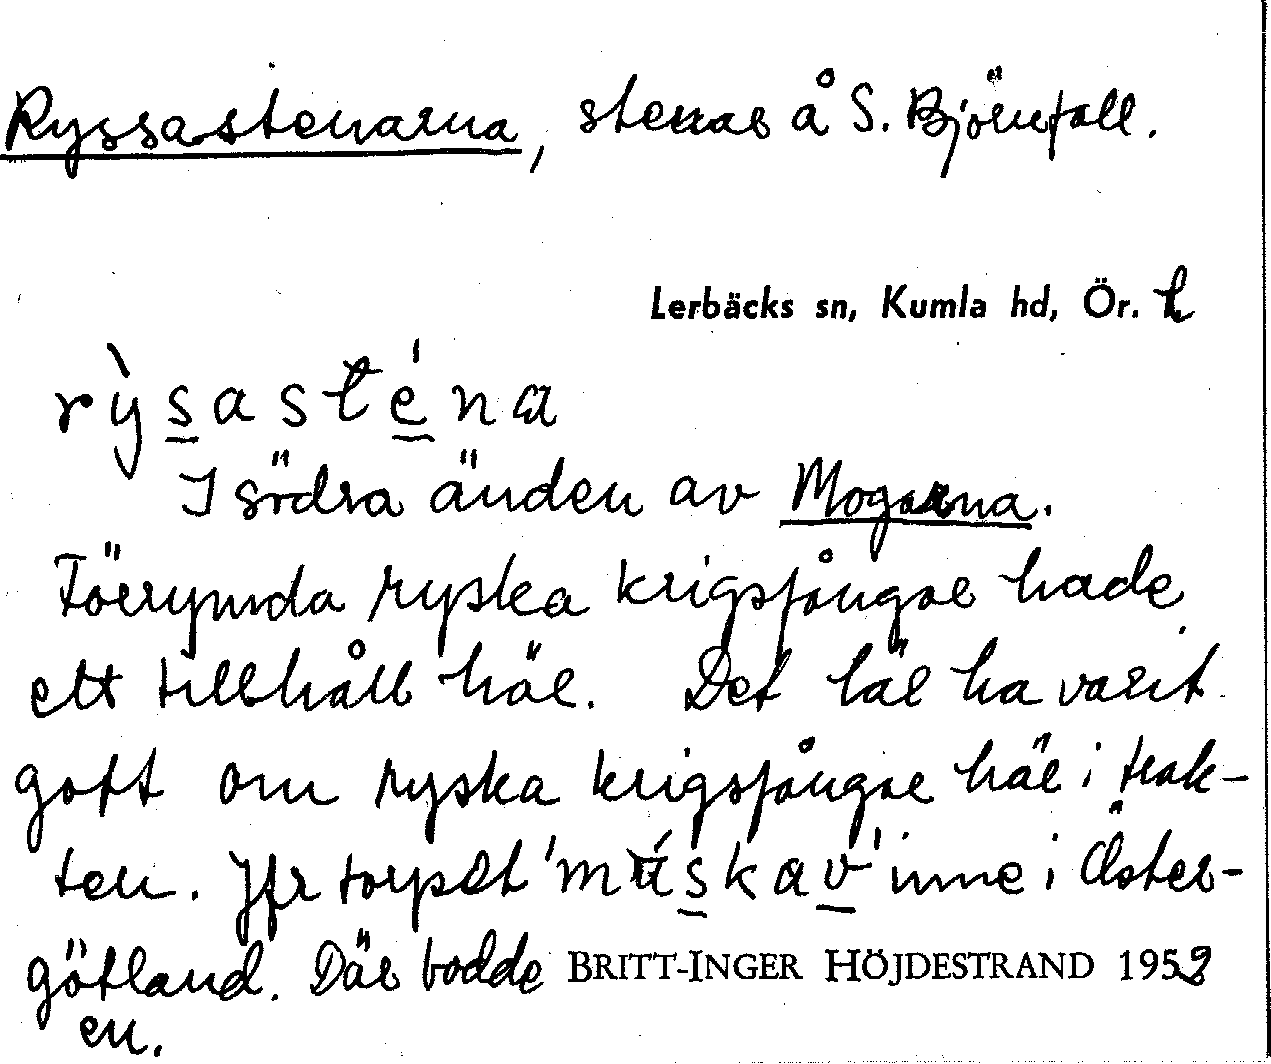 Ryssastenarna, stenar å S. Björnfall.
Lerbäcks sn, Kumla hd, Ör. l
rỳsasténa
I södra änden av Mogarna.
Förrymda ryska krigsfångar hade
ett tillhåll här. Det lär ha varit
gott om ryska krigsfångar här i trak-
ten. Jfr torpet 'múskav' inne i Öster-
götland. Där bodde
BRITT-INGER HÖJDESTRAND 1952
en.